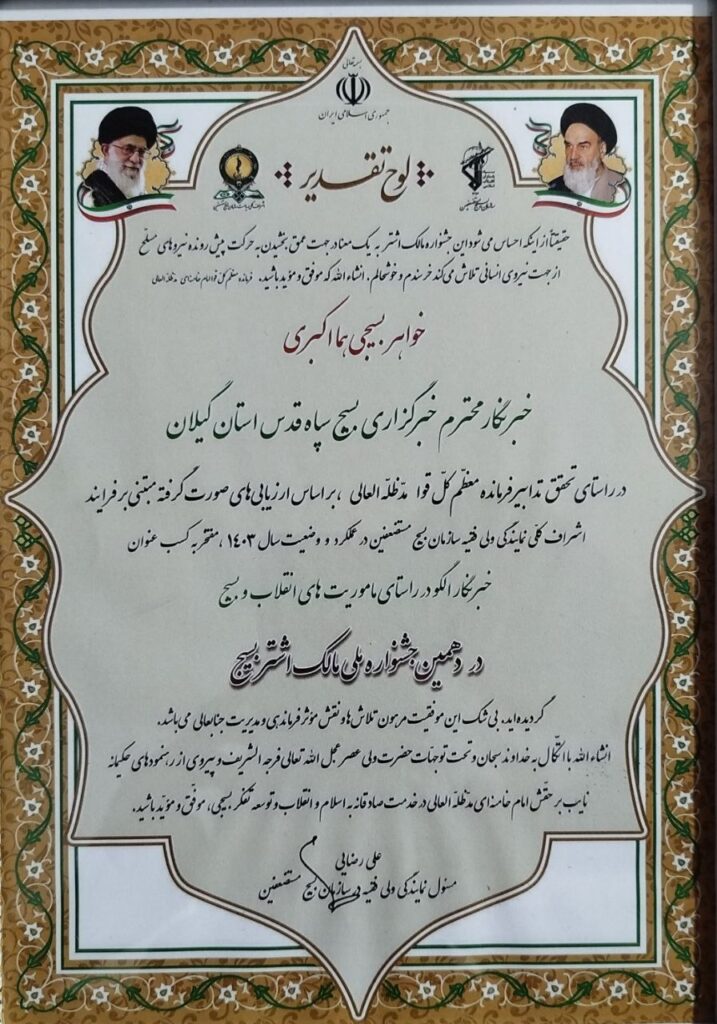 بسمه تعالی
جمهوری اسلامی ایران
لوح تقدیر
حقیقتاً از اینکه احساس می شود این جشنواره مالک اشتر به یک معنا در جهت عمق بخشیدن به حرکت پیش رونده نیروهای مسلح
از جهت نیروی انسانی تلاش می کند خرسندم و خوشحالم. انشاء الله که موفق و مؤید باشید. فرمانده معظم کل قوا امام خامنه ای مدظله العالی
خواهر بسیجی هما اکبری
خبرنگار محترم خبرگزاری بسیج سپاه قدس استان گیلان
در راستای تحقق تدابیر فرمانده معظم کل قوا مدّظلّه العالی ، بر اساس ارزیابی های صورت گرفته مبتنی بر فرایند
اشراف کلّی نمایندگی ولی فقیه سازمان بسیج مستضعفین در عملکرد و وضعیت سال ۱۴۰۳ ، مفتخر به کسب عنوان
خبرنگار الگو در راستای ماموریت های انقلاب و بسیج
در دهمین جشنواره ملی مالک اشتر بسیج
گردیده اید. بی شک این موفقیت مرهون تلاش ها و نقش مؤثر فرماندهی و مدیریت جنابعالی می باشد.
انشاء الله با اتّکال به خداوند سبحان و تحت توجهات حضرت ولی عصر عجل الله تعالی فرجه الشریف و پیروی از رهنمودهای حکیمانه
نایب بر حقّش امام خامنه ای مدّظلّه العالی در خدمت صادقانه به اسلام و انقلاب و توسعه تفکر بسیجی، موفّق و مؤیّد باشید.
علی رضایی
مسئول نمایندگی ولی فقیه در سازمان بسیج مستضعفین